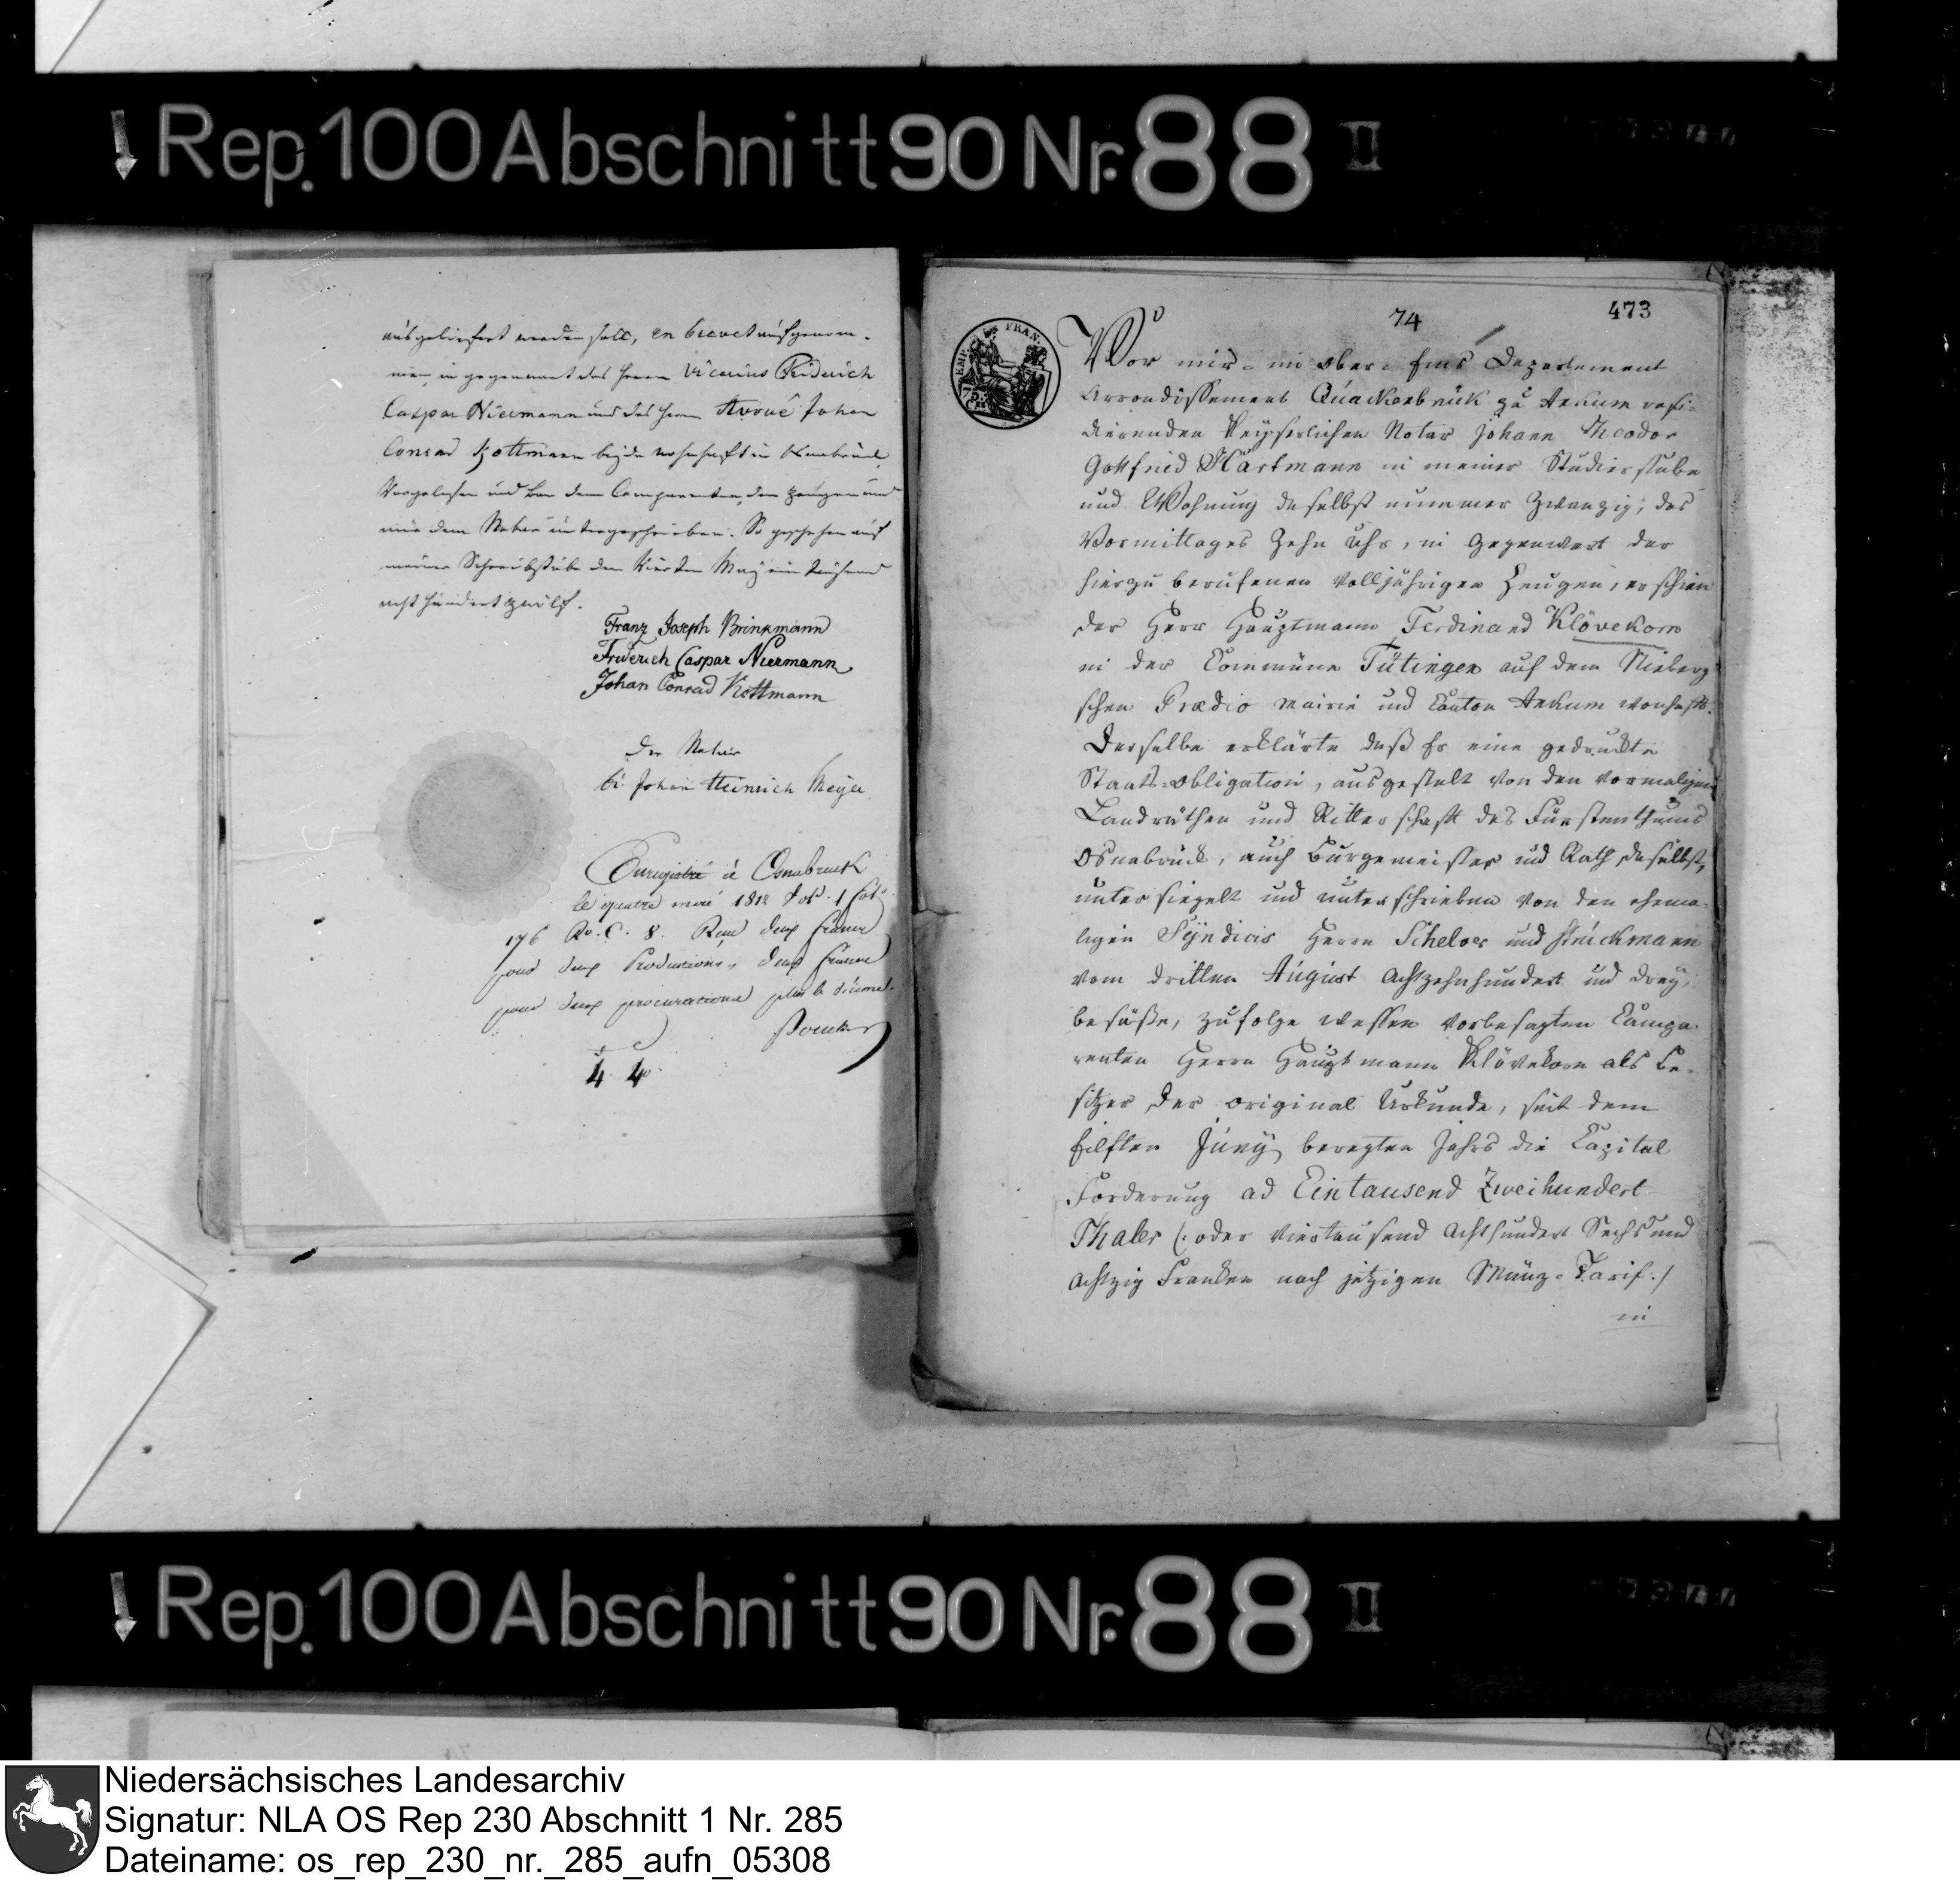 Rep. 100 Abschnitt 90 Nr. 88 II
ausgeliefert werden soll, en brevet aufgenom-
men, in gegenwart des Herrn Vicarius Friderich
Caspar Niermann und des Herrn Avoué Johan
Conrad Kottmann beyde wohnhaft in Osnabrück,
Vorgelesen und von dem Comparenten, den Zeugen und
mir dem Notar unterschrieben. So geschehen auf
meiner Schreibstube den Vierten May ein tausend
acht hundert zwölf.
Franz Joseph Brinkmann
Friderich Caspar Niermann
Johan Conrad Kottmann
Der Notar
Johan Heinrich Meyer
Enregistré à Osnabruck
le quatre mai 1812 fol. 
176 Ro. C. 8. Reçu deux francs
pour deux Productions, deux francs
pour deux procurations plus le décime.
4 40
74
473
EMP. FRAN.
75
Vor mir im Ober-Ems Departement
Arrondissement Quackenbrück zu Ankum resi-
dierenden Keyserlichen Notar Johann Theodor
Gottfried Hartmann in meiner Studierstube
und Wohnung daselbst nummer Zwanzig; des
Vormittages Zehn Uhr, in Gegenwart der
hierzu berufenen volljährigen Zeugen, erschien
der Herr Hauptmann Ferdinand Klövekorn
in der Commüne Tütingen auf dem Nieberg
schen Prædio Mairie und Canton Ankum wonhaft.
Derselbe erklärte daß Er eine gedruckte
Staats-Obligation, ausgestelt von den vormaligen
Landräthen und Ritterschaft des Fürstenthums
Osnabrück, auch Bürgemeister und Rath daselbst,
untersiegelt und unterschrieben von den ehema-
ligen Syndicis Herrn Schelver und Struckmann
vom dritten August Achtzehnhundert und drey,
besäße, zufolge wessen vorbesagten Compa-
renten Herrn Hauptmann Klövekorn als Be-
sitzer der original Urkunde, seit dem
Eilften Juny beregten Jahrs die Capital
Forderung ad Eintausend Zweihundert
Thaler (: oder Viertausend Achthundert Sechs und
Achtzig Franken nach jetzigen Münz-Tarif :)
in
Rep. 100 Abschnitt 90 Nr. 88 II
Niedersächsisches Landesarchiv
Signatur: NLA OS Rep 230 Abschnitt 1 Nr. 285
Dateiname: os_rep_230_nr._285_aufn_05308